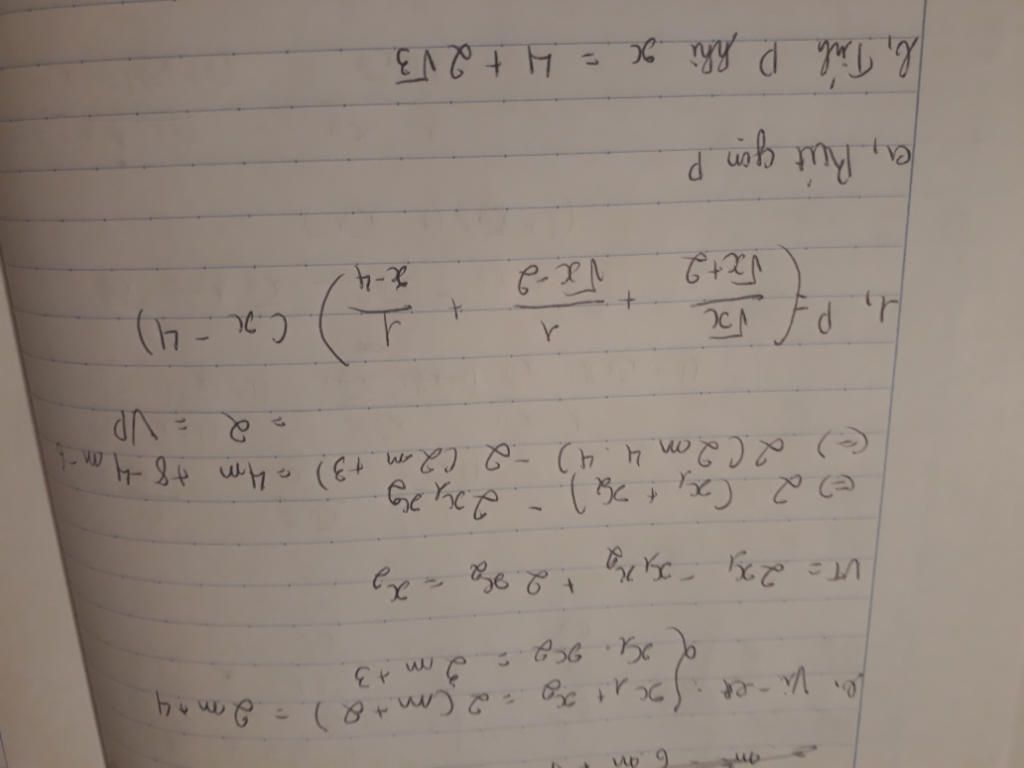 c, Vi-et: { x1 + x2 = 2(m+2) = 2m+4
x1 . x2 = 2m+3
VT = 2x1 - x1x2 + 2x2 = x2
(=) 2 (x1 + x2) - 2x1x2
(=) 2 (2m + 4) - 2 (2m+3) = 4m + 8 - 4m -
= 2 = VP
1, P = ( √x / √x+2 + 1 / √x-2 + 1 / x-4 ) (x - 4)
a, Rút gọn P
b, Tính P khi x = 4 + 2√3